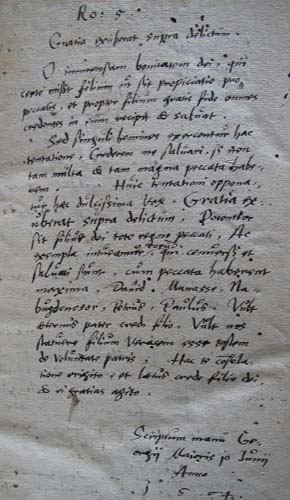 Ro: 5.
Gratia exuberat supra delictum.
O immensam bonitatem dei, qui
certo misit filium ut sit propiciatio pro
peccatis, et propter filium gratis fide omnes
credentes in eum recipit & salvat.
Sed singuli homines exercentur hac
tentatione, Crederem me salvari, si non
tam multa & tam magna peccata habe
rem. Huic tentationi oppona
tur hæc dulcissima vox. Gratia ex-
uberat supra delictum. Potentior
sit filius dei toto regno peccati, Ac
exempla intueamur eorum, qui conversi et
salvati sunt, cum peccata haberent
maxima. David. Manasse. Na-
bugdonosor, Petrus, Paulus. Vult
æternus pater credi filio. Vult nos
statuere filium veracem esse testem
de voluntate patris, Hac te cõsola
tione erigito, et lætus crede filio dei,
& ei gratias agito.
Scriptum manu Ge-
orgij Maioris 10 Junij
Anno
1 5 4